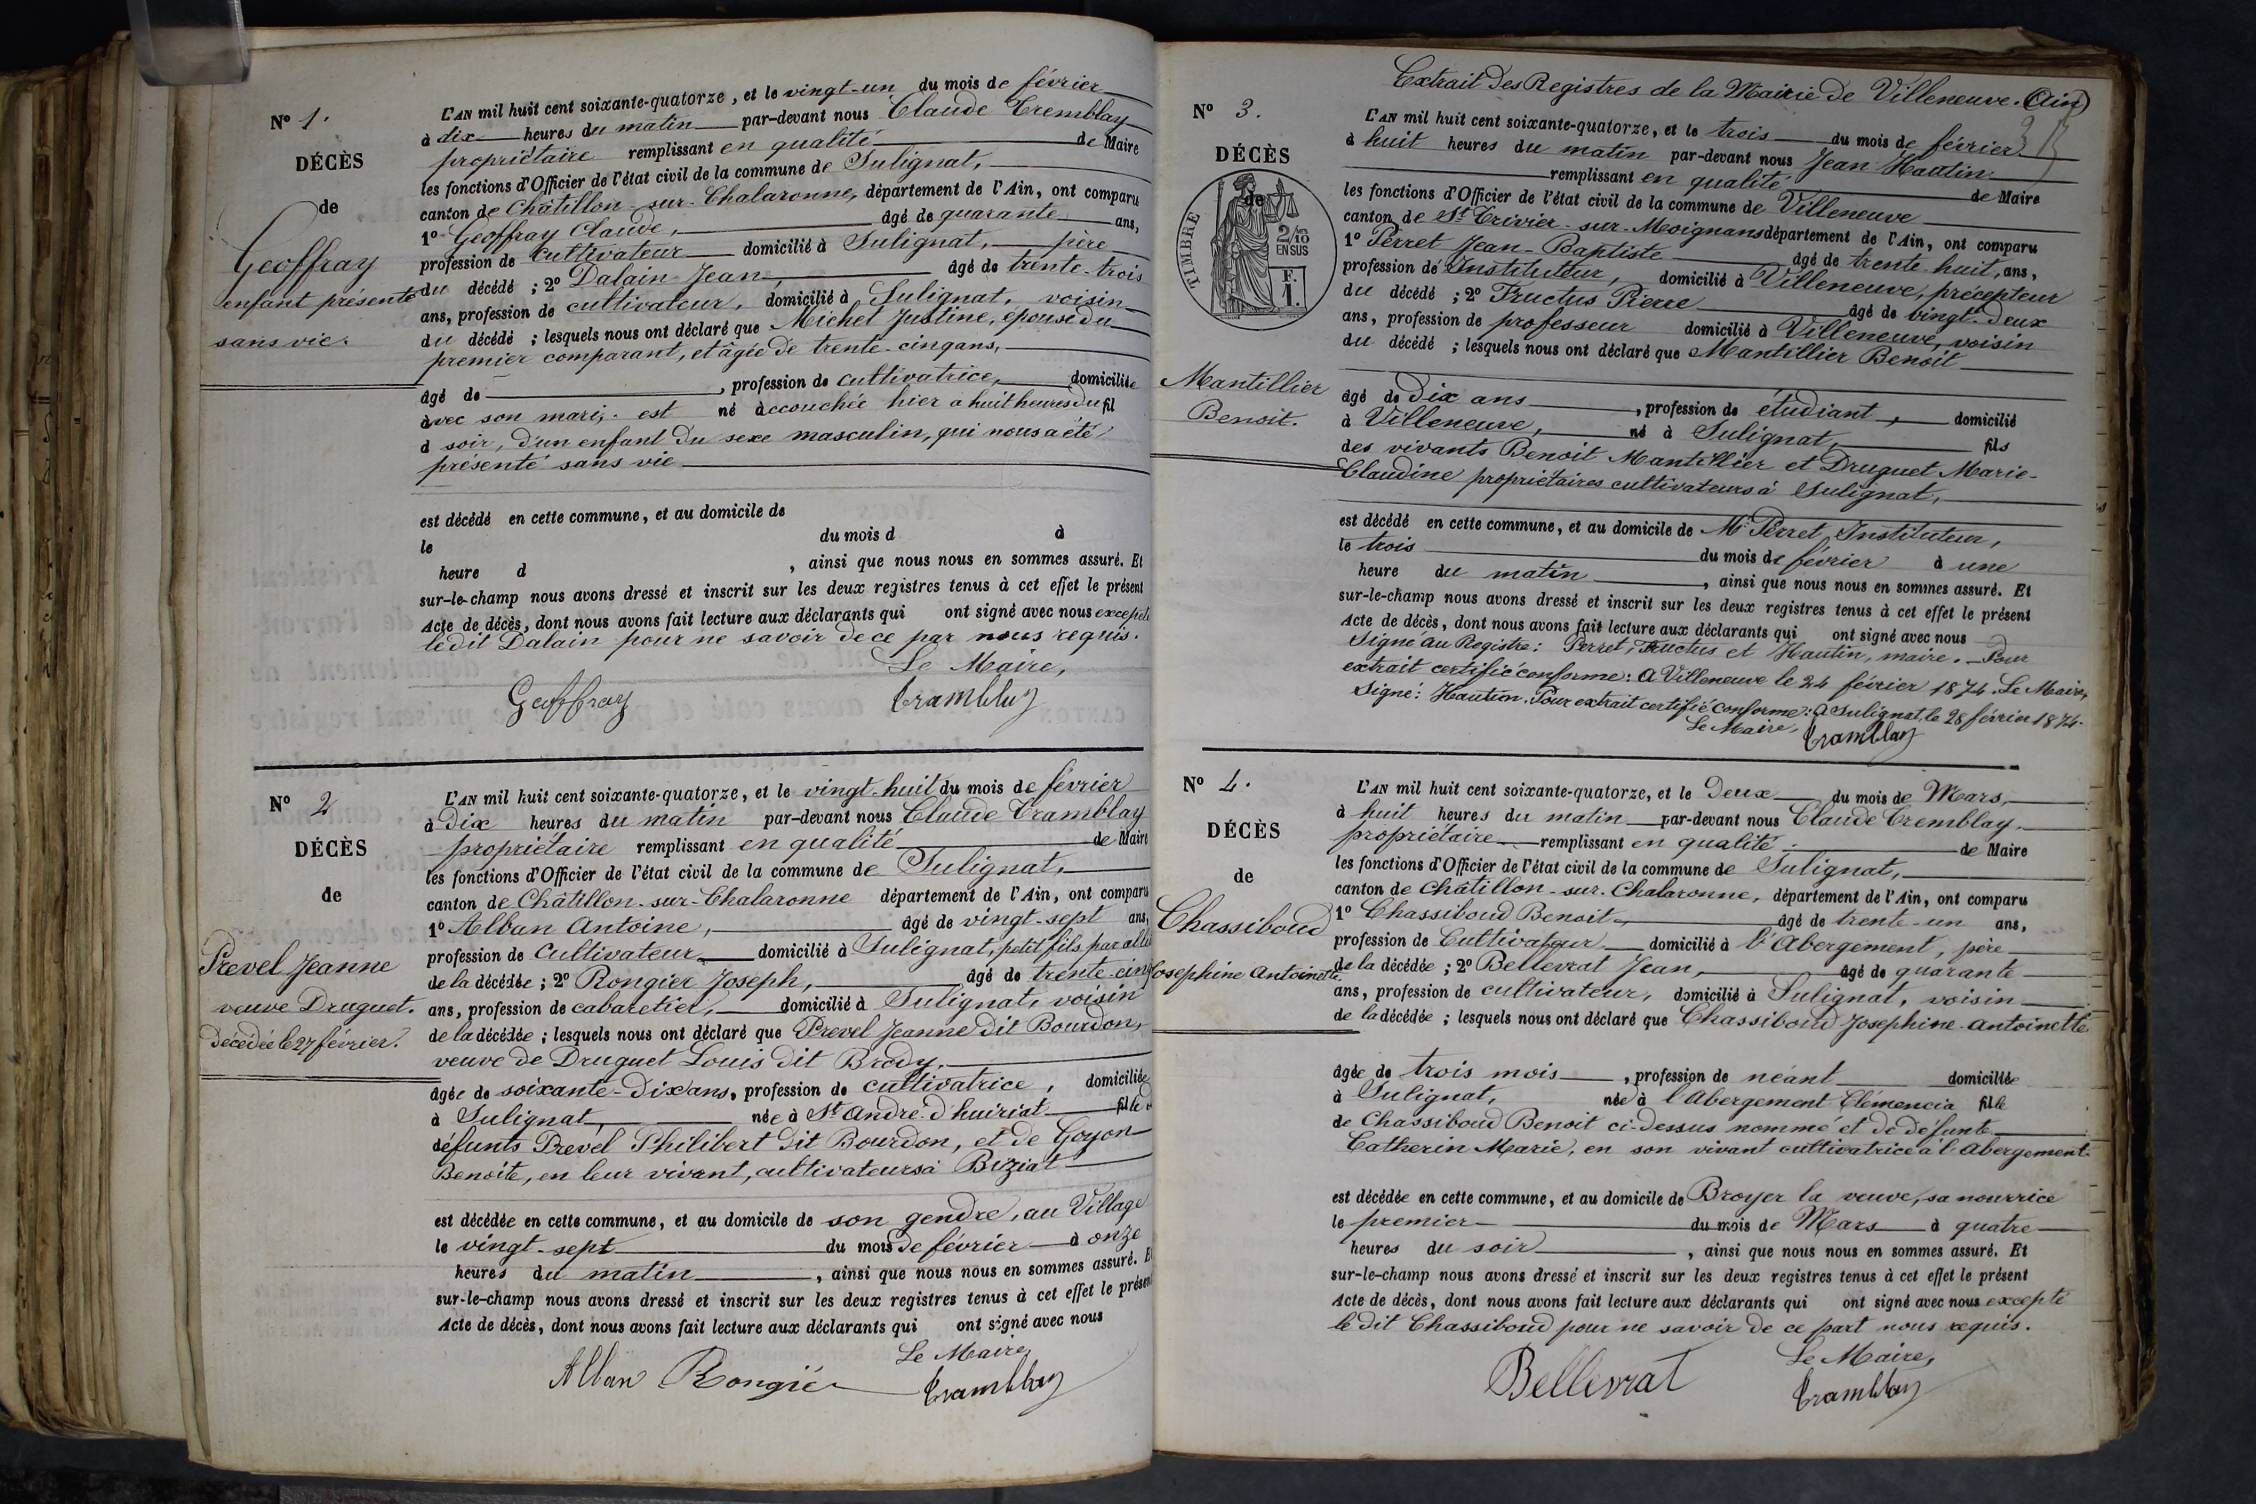 N° 1.
DÉCÈS
de
Geoffray
enfant présenté
sans vie.
L'AN mil huit cent soixante-quatorze, et le vingt-un du mois de février
à dix heures du matin par-devant nous Claude Tremblay
propriétaire remplissant en qualité de Maire
les fonctions d'Officier de l'état civil de la commune de Sulignat,
canton de Châtillon-sur-Chalaronne, département de l'Ain, ont comparu
1° Geoffray Claude, âgé de quarante ans,
profession de cultivateur domicilié à Sulignat, père
du décédé ; 2° Dalain Jean, âgé de trente-trois
ans, profession de cultivateur, domicilié à Sulignat, voisin
du décédé ; lesquels nous ont déclaré que Michel Justine, épouse du
premier comparant, et âgée de trente-cinq ans,
âgé de , profession de cultivatrice, domiciliée
avec son mari, est né accouchée hier a huit heures du fil
d soir, d'un enfant du sexe masculin, qui nous a été
présenté sans vie
est décédé en cette commune, et au domicile de
le du mois d à
heure d , ainsi que nous nous en sommes assuré. Et
sur-le-champ nous avons dressé et inscrit sur les deux registres tenus à cet effet le présent
Acte de décès, dont nous avons fait lecture aux déclarants qui ont signé avec nous excepté
le dit Dalain pour ne savoir de ce par nous requis.
Le Maire,
Geoffray Tramblay
N° 2
DÉCÈS
de
Prevel Jeanne
veuve Druguet.
décédée le 27 février.
L'AN mil huit cent soixante-quatorze, et le vingt-huit du mois de février
à dix heures du matin par-devant nous Claude Tramblay
propriétaire remplissant en qualité de Maire
les fonctions d'Officier de l'état civil de la commune de Sulignat,
canton de Châtillon-sur-Chalaronne département de l'Ain, ont comparu
1° Alban Antoine, âgé de vingt-sept ans,
profession de cultivateur domicilié à Sulignat, petit fils par
de la décédée ; 2° Rongier Joseph, âgé de trente-cinq
ans, profession de cabaretier, domicilié à Sulignat, voisin
de la décédée ; lesquels nous ont déclaré que Prevel Jeanne dit Bourdon,
veuve de Druguet Louis dit Brady,
âgée de soixante-dix ans, profession de cultivatrice, domiciliée
à Sulignat, née à St André d'huiriat fille
défunts Prevel Philibert dit Bourdon, et de Goyon
Benoite, en leur vivant, cultivateurs à Biziat
est décédée en cette commune, et au domicile de son gendre, au Village
le vingt-sept du mois de février à onze
heures du matin , ainsi que nous nous en sommes assuré. Et
sur-le-champ nous avons dressé et inscrit sur les deux registres tenus à cet effet le présent
Acte de décès, dont nous avons fait lecture aux déclarants qui ont signé avec nous
Le Maire,
Alban Rongier Tramblay
Extrait des Registres de la Mairie de Villeneuve. (Ain)
N° 3.
DÉCÈS
de
TIMBRE
2/10
EN SUS
F.
1.
Mantillier
Benoit.
L'AN mil huit cent soixante-quatorze, et le trois du mois de février
à huit heures du matin par-devant nous Jean Hautin
remplissant en qualité de Maire
les fonctions d'Officier de l'état civil de la commune de Villeneuve
canton de St Trivier-sur-Moignans département de l'Ain, ont comparu
1° Perret Jean-Baptiste âgé de trente-huit, ans,
profession de Instituteur, domicilié à Villeneuve, précepteur
du décédé ; 2° Fructus Pierre âgé de vingt-deux
ans, profession de professeur domicilié à Villeneuve, voisin
du décédé ; lesquels nous ont déclaré que Mantillier Benoit
âgé de dix ans , profession de étudiant, domicilié
à Villeneuve, né à Sulignat, fils
des vivants Benoit Mantillier et Druguet Marie-
Claudine propriétaires cultivateurs à Sulignat,
est décédé en cette commune, et au domicile de Mr Perret Instituteur,
le trois du mois de février à une
heure du matin , ainsi que nous nous en sommes assuré. Et
sur-le-champ nous avons dressé et inscrit sur les deux registres tenus à cet effet le présent
Acte de décès, dont nous avons fait lecture aux déclarants qui ont signé avec nous
Signé au Registre : Perret, Fructus et Hautin, maire. _ Pour
extrait certifié conforme : A Villeneuve le 24 février 1874. Le Maire,
Signé : Hautin. Pour extrait certifié conforme : A Sulignat, le 28 février 1874.
Le Maire, Tramblay
N° 4.
DÉCÈS
de
Chassiboud
Josephine Antoinette
L'AN mil huit cent soixante-quatorze, et le deux du mois de Mars,
à huit heures du matin par-devant nous Claude Tremblay,
propriétaire remplissant en qualité de Maire
les fonctions d'Officier de l'état civil de la commune de Sulignat,
canton de Châtillon-sur-Chalaronne, département de l'Ain, ont comparu
1° Chassiboud Benoit, âgé de trente-un ans,
profession de Cultivateur domicilié à l'Abergement, père
de la décédée ; 2° Bellevrat Jean, âgé de quarante
ans, profession de cultivateur, domicilié à Sulignat, voisin
de la décédée ; lesquels nous ont déclaré que Chassiboud Josephine-Antoinette
âgée de trois mois , profession de néant domiciliée
à Sulignat, née à l'Abergement Clémencia fille
de Chassiboud Benoit ci-dessus nommé et de défunte
Catherin Marie, en son vivant cultivatrice à l'Abergement.
est décédée en cette commune, et au domicile de Broyer la veuve, sa nourrice
le premier du mois de Mars à quatre
heures du soir , ainsi que nous nous en sommes assuré. Et
sur-le-champ nous avons dressé et inscrit sur les deux registres tenus à cet effet le présent
Acte de décès, dont nous avons fait lecture aux déclarants qui ont signé avec nous excepté
le dit Chassiboud pour ne savoir de ce part nous requis.
Le Maire,
Bellevrat Tramblay